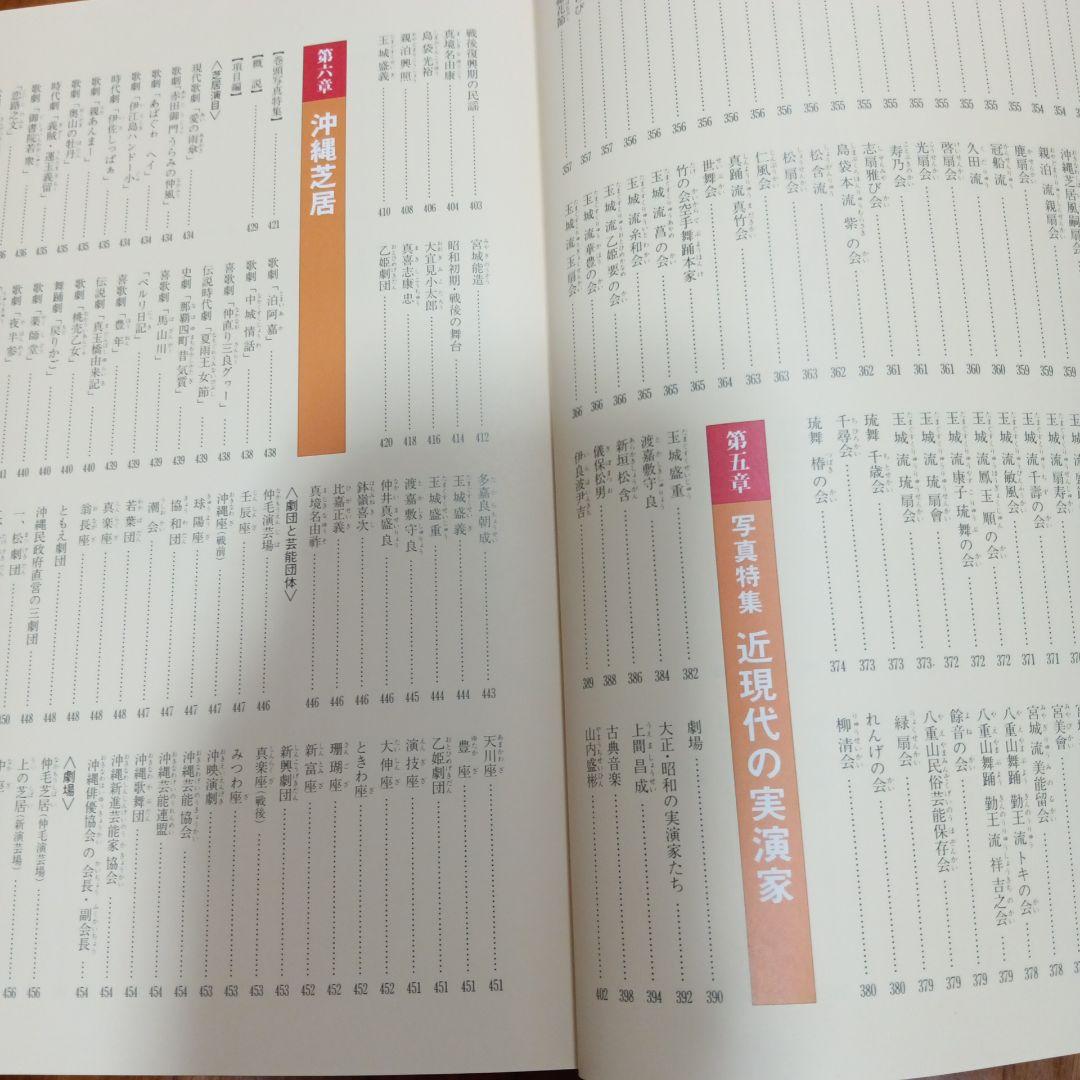 356
357
沖縄芝居風嗣扇会 359
親泊流親扇会 359
鹿扇会 360
冠船流 360
久田流 360
啓扇会 361
光扇会 361
寿乃会 361
志扇雅び会 361
島袋本流 紫の会 362
松含流 362
松扇会 363
仁風会 363
真踊流真竹会 363
世舞会 364
竹の会空手舞踊本家 365
玉城流菖の会 365
玉城流糸和会 365
玉城流乙姫要の会 366
玉城流華豊の会 366
玉城流玉扇会 366
玉城流扇寿会 371
玉城流千壽の会 371
玉城流敏風会 371
玉城流鳳玉順の会 372
玉城流康子琉舞の会 372
玉城流琉扇會 373
玉城流琉扇会 373
琉舞 千歳会 373
千尋会 374
琉舞 椿の会
宮美會 378
宮城流美能留会 378
八重山舞踊 勤王流トキの会 378
八重山舞踊 勤王流祥吉之会 379
八重山民俗芸能保存会 379
餘音の会 379
緑扇会 380
れんげの会 380
柳清会
第五章 写真特集 近現代の実演家
玉城盛重 382
渡嘉敷守良 384
新垣松含 386
儀保松男 388
伊良波尹吉 389
劇場 390
大正・昭和の実演家たち 392
上間昌成 394
古典音楽 398
山内盛彬 402
戦後復興期の民謡 403
真境名由康 404
島袋光裕 406
親泊興照 408
玉城盛義 410
宮城能造 412
昭和初期・戦後の舞台 414
大宜見小太郎 416
真喜志康忠 418
乙姫劇団 420
第六章 沖縄芝居
【巻頭写真特集】 421
【概説】 429
【項目編】
〈芝居演目〉
現代歌劇「愛の雨傘」 434
歌劇「赤田御門うらみの仲風」 434
歌劇「あばぐゎーヘイ」 434
歌劇「伊江島ハンドー小」 434
時代劇「伊佐しっぱぁ」 434
歌劇「親あんまー」 435
歌劇「奥山の牡丹」 435
時代劇「義賊・運玉義留」 435
歌劇「御書院若衆」 436
「恋路之文」
歌劇「泊阿嘉」 438
歌劇「中城情話」 438
喜歌劇「仲直り三良グヮー」 438
伝説時代劇「夏雨王女節」 438
史劇「那覇四町昔気質」 439
喜歌劇「馬山川」 439
「ペルリ日記」 439
喜歌劇「豊年」 439
伝説劇「真玉橋由来記」 439
歌劇「桃売乙女」 440
舞踊劇「戻りかご」 440
歌劇「薬師堂」 440
歌劇「夜半参」 440
多嘉良朝成 443
玉城盛義 444
玉城盛重 444
渡嘉敷守良 445
仲井真盛良 446
鉢嶺喜次 446
比嘉正義 446
真境名由祚 446
〈劇団と芸能団体〉
仲毛演芸場 446
壬辰座 447
沖縄座(戦前) 447
球陽座 447
協和団 447
潮会 447
若葉団 448
真楽座 448
翁長座 448
ともえ劇団 448
沖縄民政府直営の三劇団 448
一、松劇団 450
天川座 451
豊座 451
乙姫劇団 451
演技座 451
大伸座 452
ときわ座 452
珊瑚座 452
新富座 452
新興劇団 452
真楽座(戦後) 453
みつわ座 453
沖映演劇 453
沖縄芸能協会 454
沖縄芸能連盟 454
沖縄歌舞団 454
沖縄新進芸能家協会 454
沖縄俳優協会の会長・副会長 454
〈劇場〉
仲毛芝居(仲毛演芸場) 456
上の芝居(新演芸場) 456